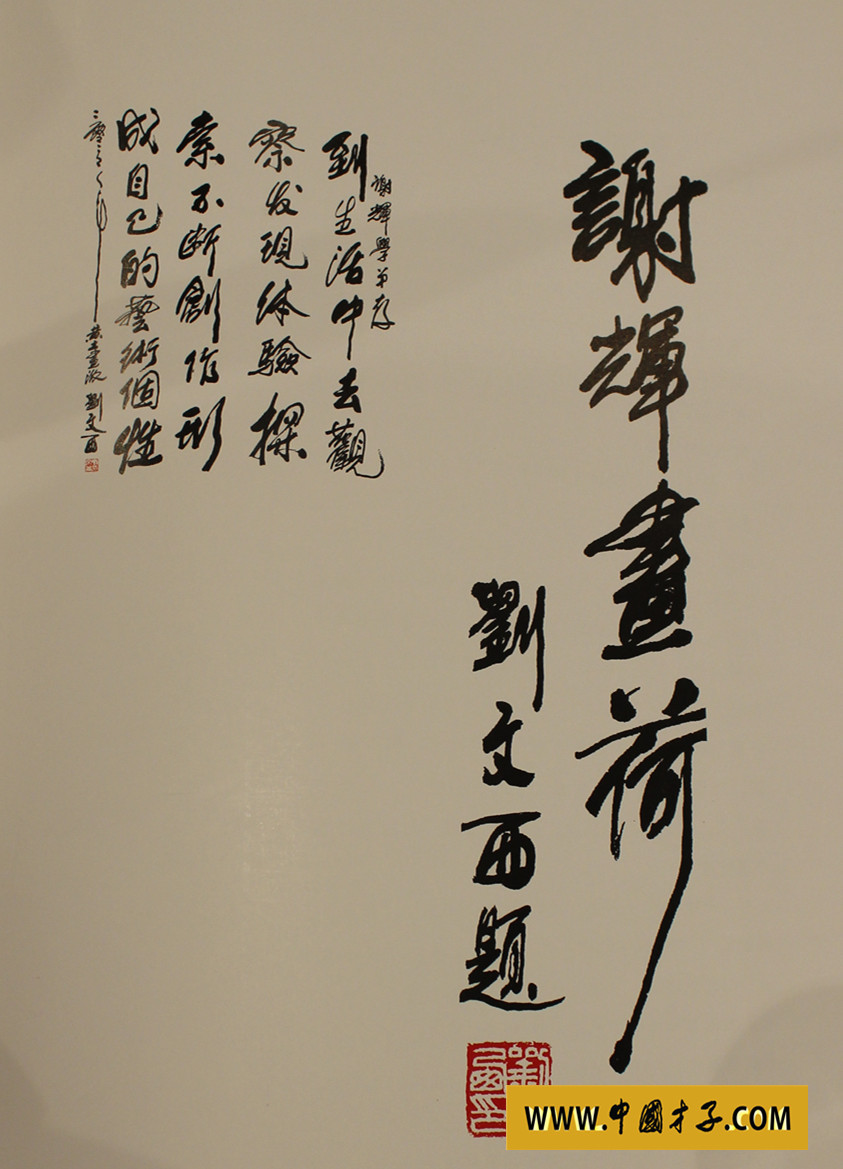 謝輝畫荷
劉文西題
謝輝學弟存
到生活中去觀
察发現体驗探
索不断創作形
成自己的藝術個性
劉文西
WWW.中國才子.COM